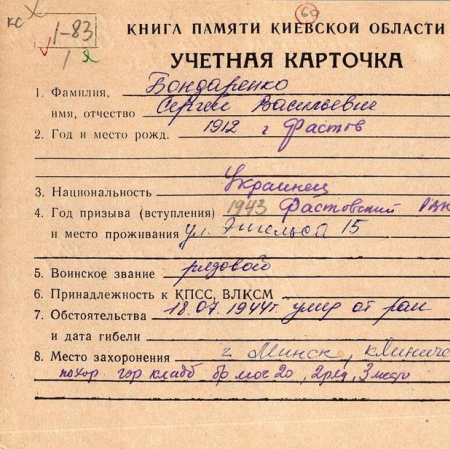 КС
1-83
1 Я
60
КНИГА ПАМЯТИ КИЕВСКОЙ ОБЛАСТИ
УЧЕТНАЯ КАРТОЧКА
1. Фамилия, Бондаренко
имя, отчество Сергей Васильевич
2. Год и место рожд. 1912 г Фастов
3. Национальность Украинец
4. Год призыва (вступления) 1943 Фастовский
и место проживания ул. Энгельса 15
5. Воинское звание рядового
6. Принадлежность к КПСС, ВЛКСМ
7. Обстоятельства 18.07.1944г. умер от ран
и дата гибели
8. Место захоронения г. Минск, клиниче
похор гор кладб бр мог 20, 2 ряд, 3 место